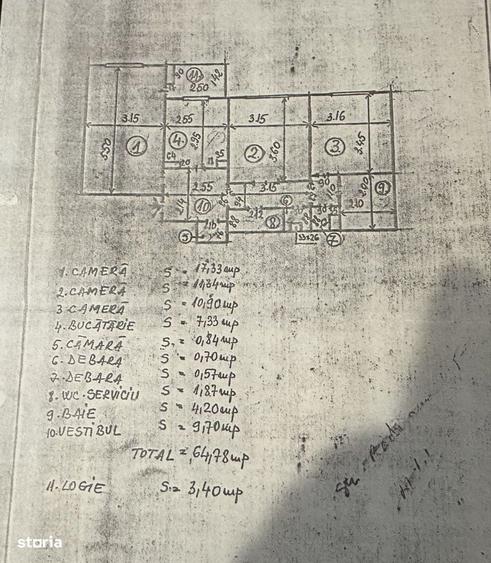 11
90
142
250
3.15
255
3.15
3.16
550
1
4
295
2
360
3
345
64
20
255
3.15
90
9
10
6
300
214
212
8
210
5
116
7
1. CAMERĂ S = 17,33 mp
2. CAMERĂ S = 11,34 mp
3 CAMERĂ S = 10,90 mp
4. BUCĂTĂRIE S = 7,33 mp
5. CĂMARĂ S. = 0,84 mp
6. DEBARA S = 0,70 mp
7. DEBARA S = 0,57 mp
8. WC. SERVICIU S = 1,87 mp
9. BAIE S = 4,20 mp
10. VESTIBUL S = 9,70 mp
TOTAL = 64,78 mp
11. LOGIE S. = 3,40 mp
storia